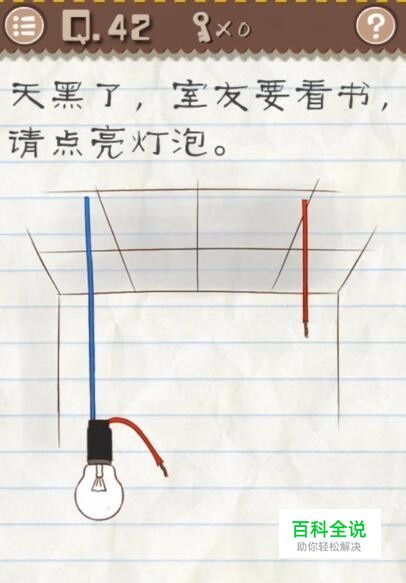 Q.42 ×0 ?
天黑了，室友要看书，
请点亮灯泡。
百科全说
助你轻松解决